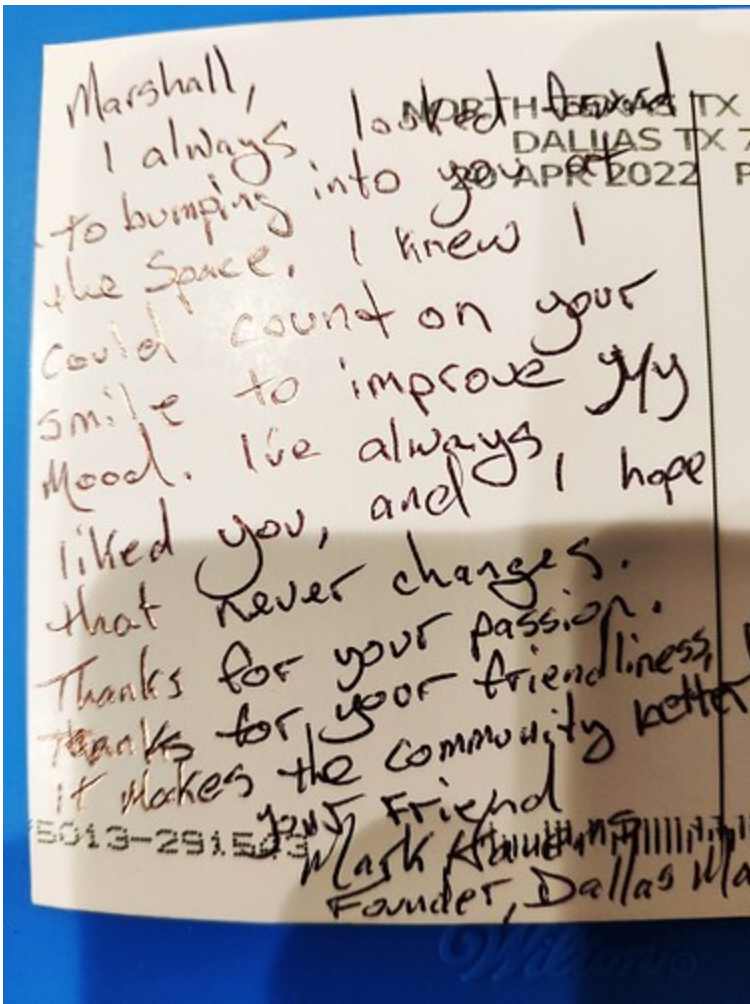 Marshall,
I always looked forward
to bumping into you at
the Space. I knew I
could count on your
smile to improve My
Mood. I've always
liked you, and I hope
that never changes.
Thanks for your passion.
Thanks for your friendliness,
it makes the community better
your Friend
Mark
Founder, Dallas Ma
NORTH TEXAS TX
DALLAS TX 7
20 APR 2022 P
75013-291503
Wilton®